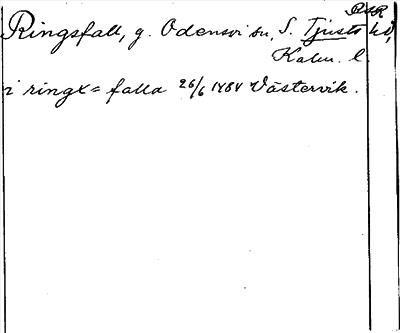 RAR
Ringsfall, g. Odensvi sn, S. Tjusts hd,
Kalm. l.
i ringx= falla 26/6 1484 Västervik.